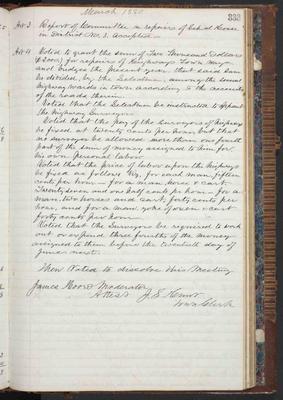 March 1880
333
Art 3 Report of Committee on repairs of School House
in District No. 3. Accepted
Art 4 Voted to grant the sum of Two Thousand Dollars
($2000) for repairs of Highways Town Ways
and bridges the present year. that said sum
be divided by the Selectmen amongst the several
highway wards in town according to the necessity
of the roads therein.
Voted that the Selectmen be instructed to appoint
the Highway Surveyors
Voted that the pay of the Surveyors of highways
be fixed at twenty cents per hour but that
no surveyor be allowed more than one fourth
part of the sum of money assigned to him for
his own personal labor.
Voted that the price of labor upon the highways
be fixed as follows Viz. for each man fifteen
cents per hour — for a man, horse & cart
Twenty seven and one half cents per hour — for a
man, two horses and cart, forty cents per
hour and for a man, yoke of oxen & cart
forty cents per hour
Voted that the Surveyors be required to work
out or expend three fourths of the money
assigned to them before the twentieth day of
June next.
Then Voted to dissolve this Meeting
James Hoord Moderator
Attest J. S.
Town Clerk